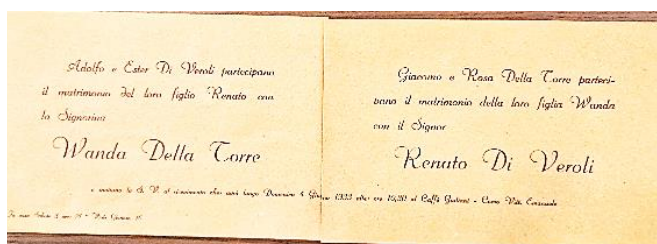 Adolfo e Ester Di Veroli partecipano
il matrimonio del loro figlio Renato con
la Signorina
Wanda Della Torre
Giacomo e Rosa Della Torre parteci-
pano il matrimonio della loro figlia Wanda
con il Signor
Renato Di Veroli
e invitano la S. V. al ricevimento che avrà luogo Domenica 4 Giugno alle ore al Caffè - Corso